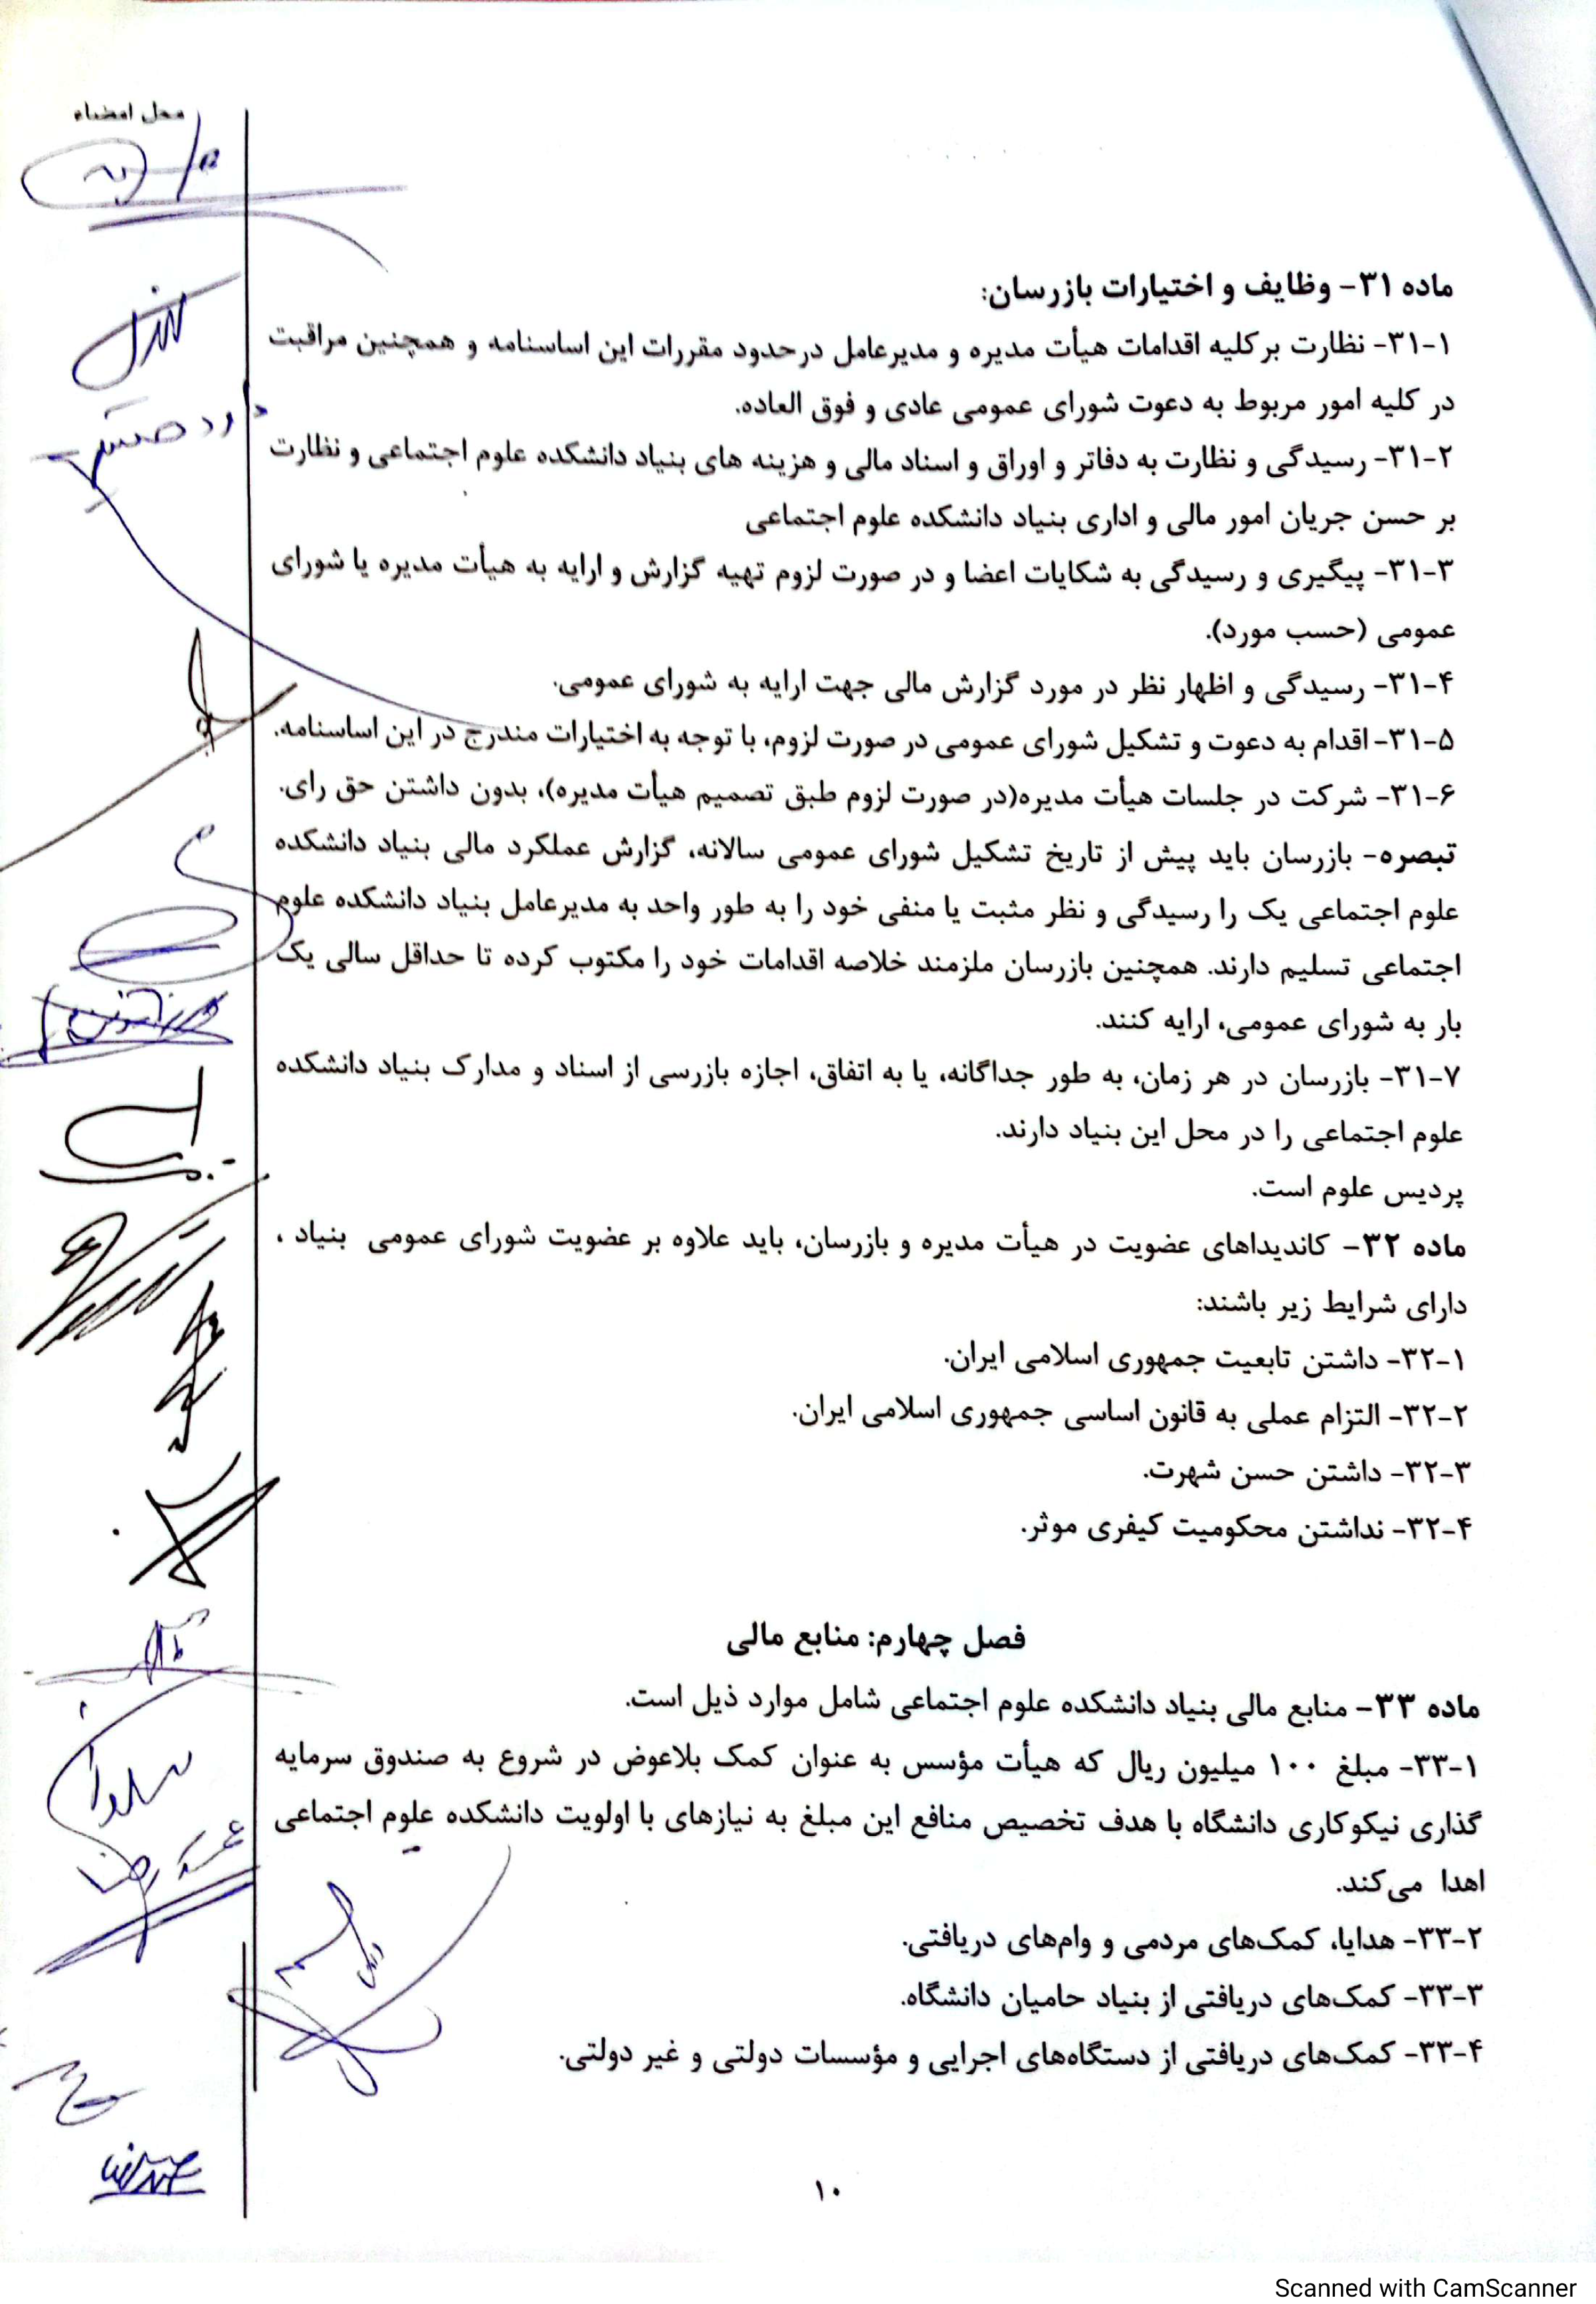 محل امضاء
ماده ۳۱- وظایف و اختیارات بازرسان:
۳۱-۱- نظارت بر کلیه اقدامات هیأت مدیره و مدیرعامل درحدود مقررات این اساسنامه و همچنین مراقبت
در کلیه امور مربوط به دعوت شورای عمومی عادی و فوق العاده.
۳۱-۲- رسیدگی و نظارت به دفاتر و اوراق و اسناد مالی و هزینه های بنیاد دانشکده علوم اجتماعی و نظارت
بر حسن جریان امور مالی و اداری بنیاد دانشکده علوم اجتماعی
۳۱-۳- پیگیری و رسیدگی به شکایات اعضا و در صورت لزوم تهیه گزارش و ارایه به هیأت مدیره یا شورای
عمومی (حسب مورد).
۳۱-۴- رسیدگی و اظهار نظر در مورد گزارش مالی جهت ارایه به شورای عمومی.
۳۱-۵- اقدام به دعوت و تشکیل شورای عمومی در صورت لزوم، با توجه به اختیارات مندرج در این اساسنامه.
۳۱-۶- شرکت در جلسات هیأت مدیره(در صورت لزوم طبق تصمیم هیأت مدیره)، بدون داشتن حق رای.
تبصره- بازرسان باید پیش از تاریخ تشکیل شورای عمومی سالانه، گزارش عملکرد مالی بنیاد دانشکده
علوم اجتماعی یک را رسیدگی و نظر مثبت یا منفی خود را به طور واحد به مدیرعامل بنیاد دانشکده علوم
اجتماعی تسلیم دارند. همچنین بازرسان ملزمند خلاصه اقدامات خود را مکتوب کرده تا حداقل سالی یک
بار به شورای عمومی، ارایه کنند.
۳۱-۷- بازرسان در هر زمان، به طور جداگانه، یا به اتفاق، اجازه بازرسی از اسناد و مدارک بنیاد دانشکده
علوم اجتماعی را در محل این بنیاد دارند.
پردیس علوم است.
ماده ۳۲- کاندیداهای عضویت در هیأت مدیره و بازرسان، باید علاوه بر عضویت شورای عمومی بنیاد ،
دارای شرایط زیر باشند:
۳۲-۱- داشتن تابعیت جمهوری اسلامی ایران.
۳۲-۲- التزام عملی به قانون اساسی جمهوری اسلامی ایران.
۳۲-۳- داشتن حسن شهرت.
۳۲-۴- نداشتن محکومیت کیفری موثر.
فصل چهارم: منابع مالی
ماده ۳۳- منابع مالی بنیاد دانشکده علوم اجتماعی شامل موارد ذیل است.
۳۳-۱- مبلغ ۱۰۰ میلیون ریال که هیأت مؤسس به عنوان کمک بلاعوض در شروع به صندوق سرمایه
گذاری نیکوکاری دانشگاه با هدف تخصیص منافع این مبلغ به نیازهای با اولویت دانشکده علوم اجتماعی
اهدا می‌کند.
۳۳-۲- هدایا، کمک‌های مردمی و وام‌های دریافتی.
۳۳-۳- کمک‌های دریافتی از بنیاد حامیان دانشگاه.
۳۳-۴- کمک‌های دریافتی از دستگاه‌های اجرایی و مؤسسات دولتی و غیر دولتی.
۱۰
Scanned with CamScanner